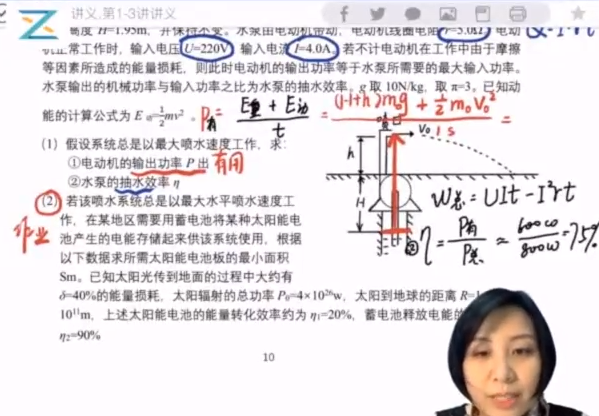 讲义,第1-3讲讲义
高度 H=1.95m，并保持不变。水泵由电动机带动，电动机线圈电阻 r=5.0Ω。电动
机正常工作时，输入电压U=220V 输入电流I=4.0A。若不计电动机在工作中由于摩擦
等因素所造成的能量损耗，则此时电动机的输出功率等于水泵所需要的最大输入功率。
水泵输出的机械功率与输入功率之比为水泵的抽水效率。g 取 10N/kg，取 π=3。已知动
能的计算公式为 E动=½mv²。
P有= (E重 + E动)/t = ((H+h)m₀g + ½m₀v₀²)/1s =
(1) 假设系统总是以最大喷水速度工作，求：
①电动机的输出功率 P 出 有用
②水泵的抽水效率 η
喷口
v₀
h
H
W总 = UIt - I²rt
η = P有/P总 ≈ 600W/800W = 75%
(2) 若该喷水系统总是以最大水平喷水速度工
作业
作，在某地区需要用蓄电池将某种太阳能电
池产生的电能存储起来供该系统使用，根据
以下数据求所需太阳能电池板的最小面积
Sm。已知太阳光传到地面的过程中大约有
δ=40%的能量损耗，太阳辐射的总功率 P₀=4×10²⁶w，太阳到地球的距离 R=1
10¹¹m，上述太阳能电池的能量转化效率约为 η₁=20%，蓄电池释放电能的
η₂=90%
10